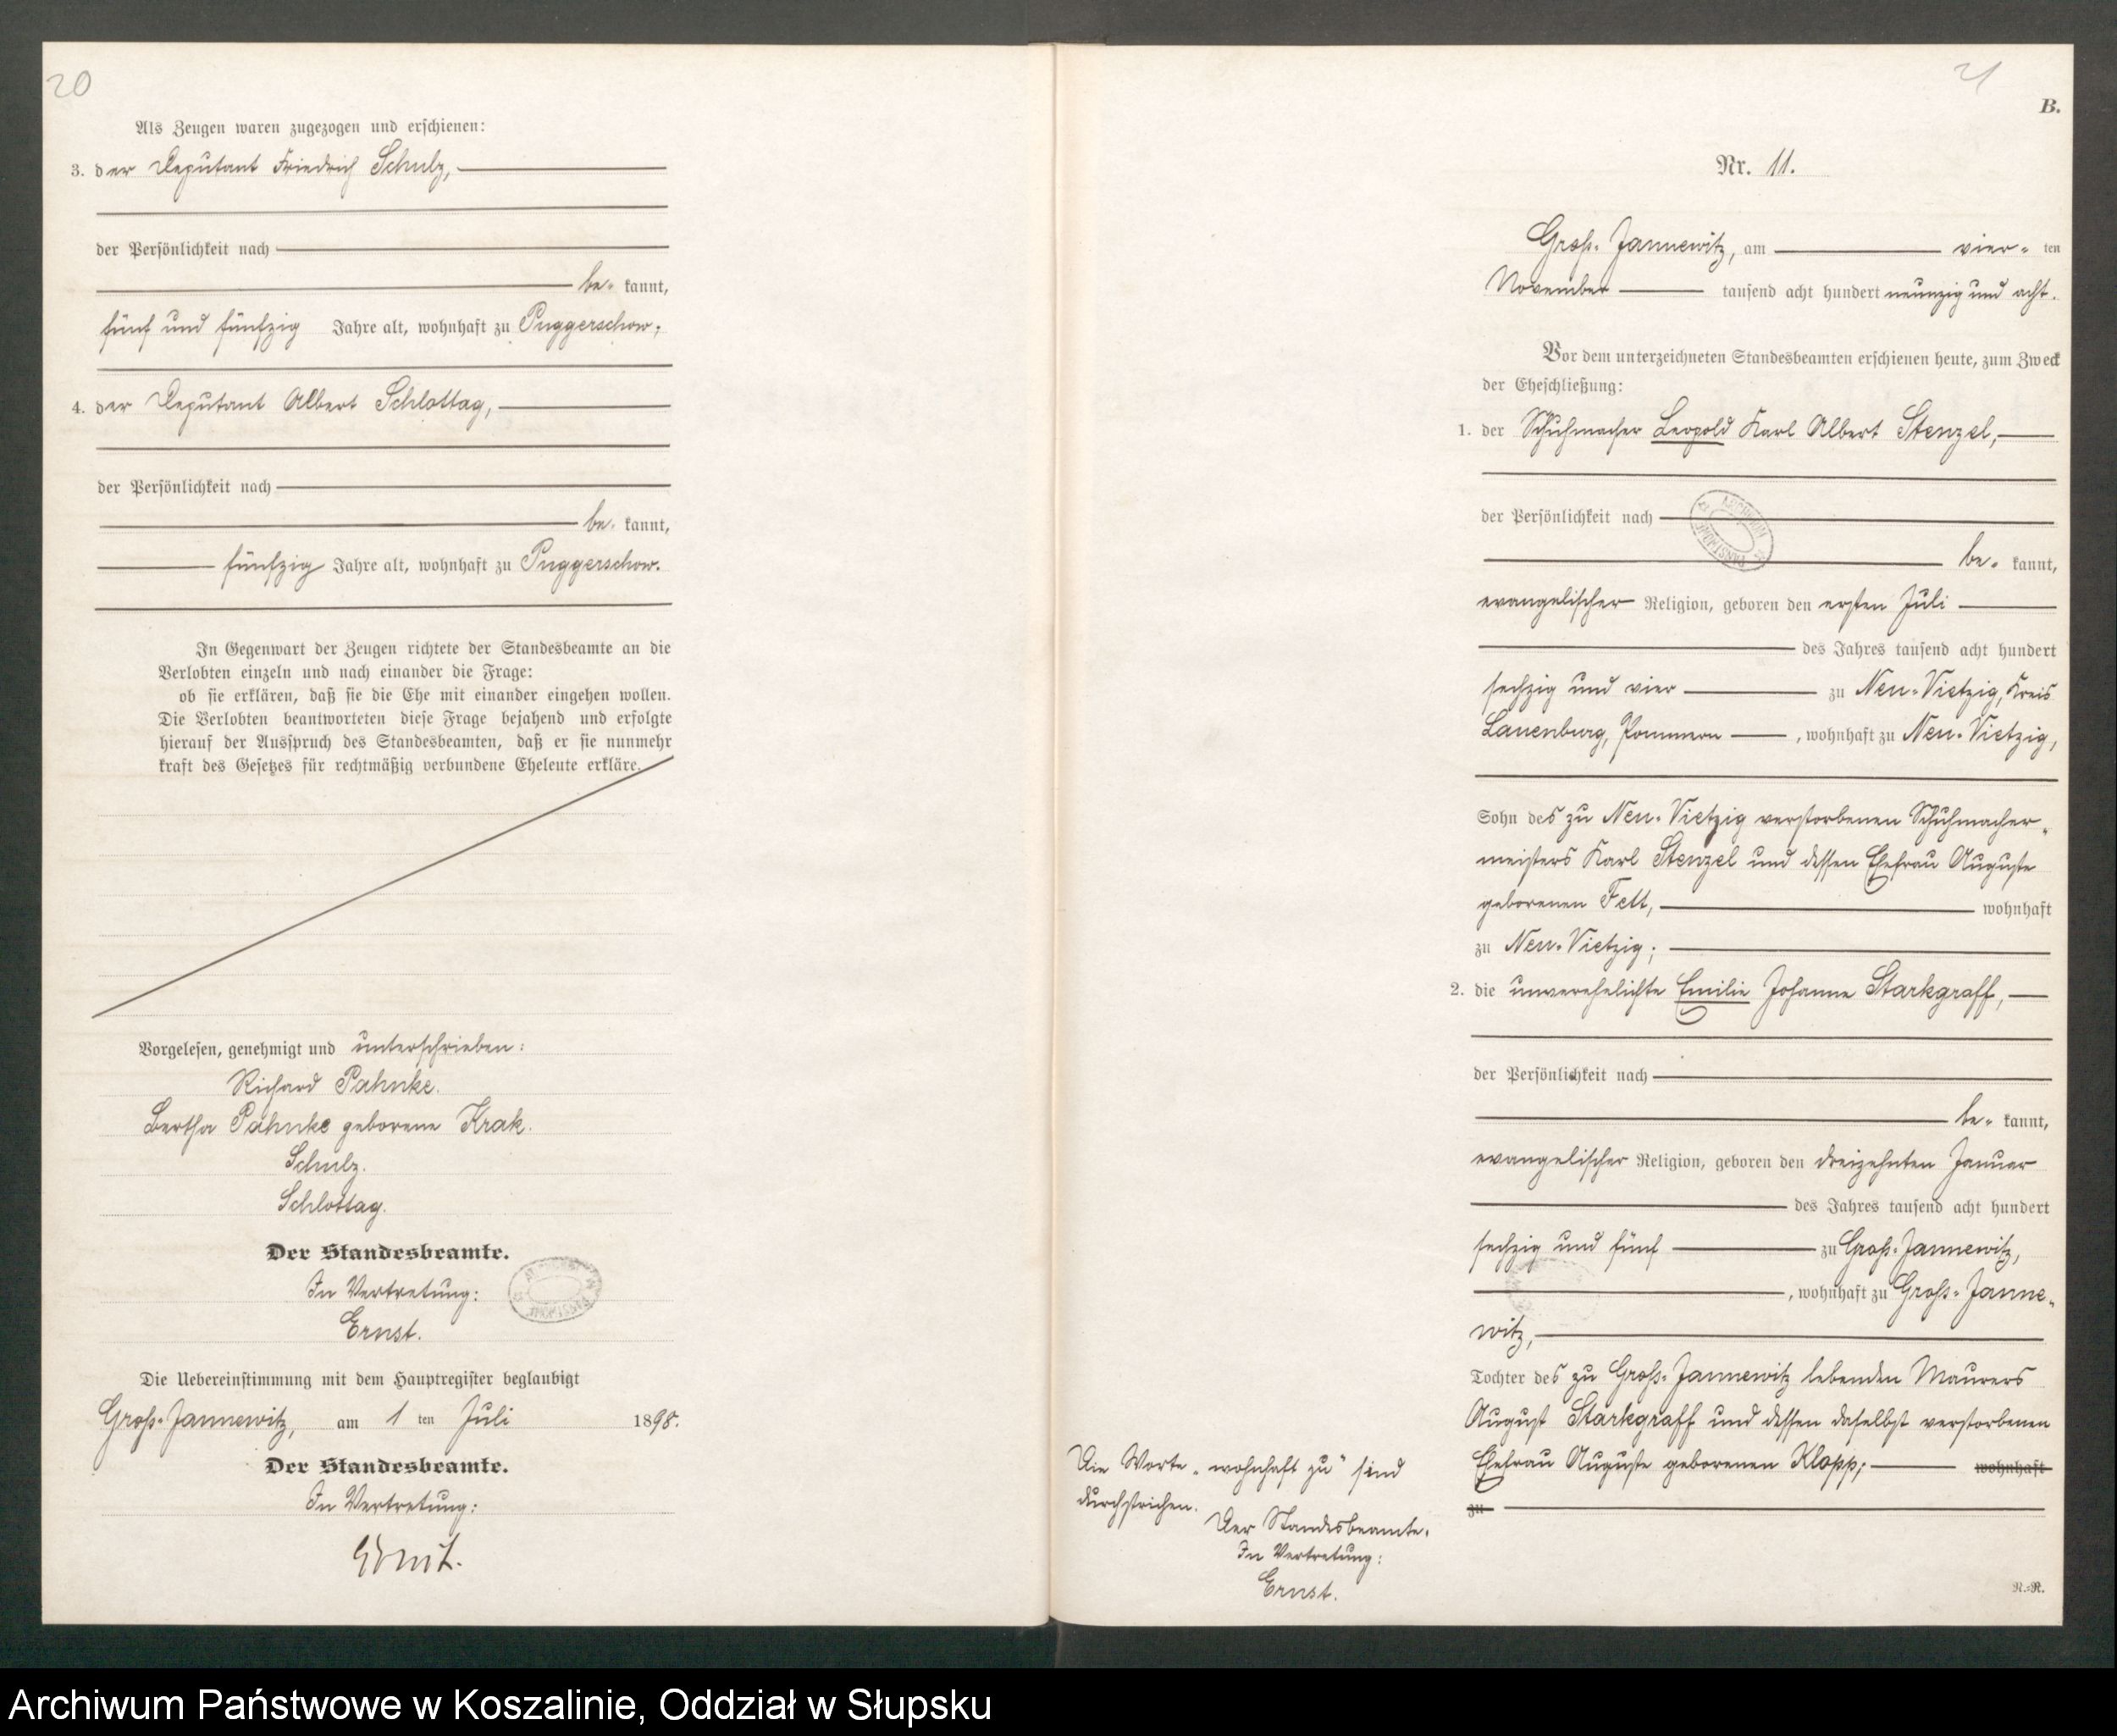 20
Als Zeugen waren zugezogen und erschienen:
3. der Deputant Friedrich Schulz,
der Persönlichkeit nach
be- kannt,
fünf und fünfzig Jahre alt, wohnhaft zu Puggerschow;
4. der Deputant Albert Schlottag,
der Persönlichkeit nach
be- kannt,
fünfzig Jahre alt, wohnhaft zu Puggerschow.
In Gegenwart der Zeugen richtete der Standesbeamte an die
Verlobten einzeln und nach einander die Frage:
ob sie erklären, daß sie die Ehe mit einander eingehen wollen.
Die Verlobten beantworteten diese Frage bejahend und erfolgte
hierauf der Ausspruch des Standesbeamten, daß er sie nunmehr
kraft des Gesetzes für rechtmäßig verbundene Eheleute erkläre.
Vorgelesen, genehmigt und unterschrieben:
Richard Pahnke.
Bertha Pahnke geborene Krak.
Schulz.
Schlottag.
Der Standesbeamte.
In Vertretung:
Ernst.
Die Uebereinstimmung mit dem Hauptregister beglaubigt
Groß-Jannewitz, am 1 ten Juli 1898.
Der Standesbeamte.
In Vertretung:
Ernst.
21
B.
Nr. 11.
Groß-Jannewitz, am vier- ten
November tausend acht hundert neunzig und acht.
Vor dem unterzeichneten Standesbeamten erschienen heute, zum Zweck
der Eheschließung:
1. der Schuhmacher Leopold Karl Albert Stenzel,
der Persönlichkeit nach
be- kannt,
evangelischer Religion, geboren den ersten Juli
des Jahres tausend acht hundert
sechzig und vier zu Neu-Vietzig, Kreis
Lauenburg, Pommern , wohnhaft zu Neu-Vietzig,
Sohn des zu Neu-Vietzig verstorbenen Schuhmacher-
meisters Karl Stenzel und dessen Ehefrau Auguste
geborenen Fett, wohnhaft
zu Neu-Vietzig;
2. die unverehelichte Emilie Johanne Starkgraff,
der Persönlichkeit nach
be- kannt,
evangelischer Religion, geboren den dreizehnten Januar
des Jahres tausend acht hundert
sechzig und fünf zu Groß-Jannewitz,
, wohnhaft zu Groß-Janne-
witz,
Tochter des zu Groß-Jannewitz lebenden Maurers
August Starkgraff und dessen daselbst verstorbenen
Ehefrau Auguste geborenen Klopp; wohnhaft
zu
Die Worte „wohnhaft zu" sind
durchstrichen.
Der Standesbeamte.
In Vertretung:
Ernst.
R.-R.
Archiwum Państwowe w Koszalinie, Oddział w Słupsku